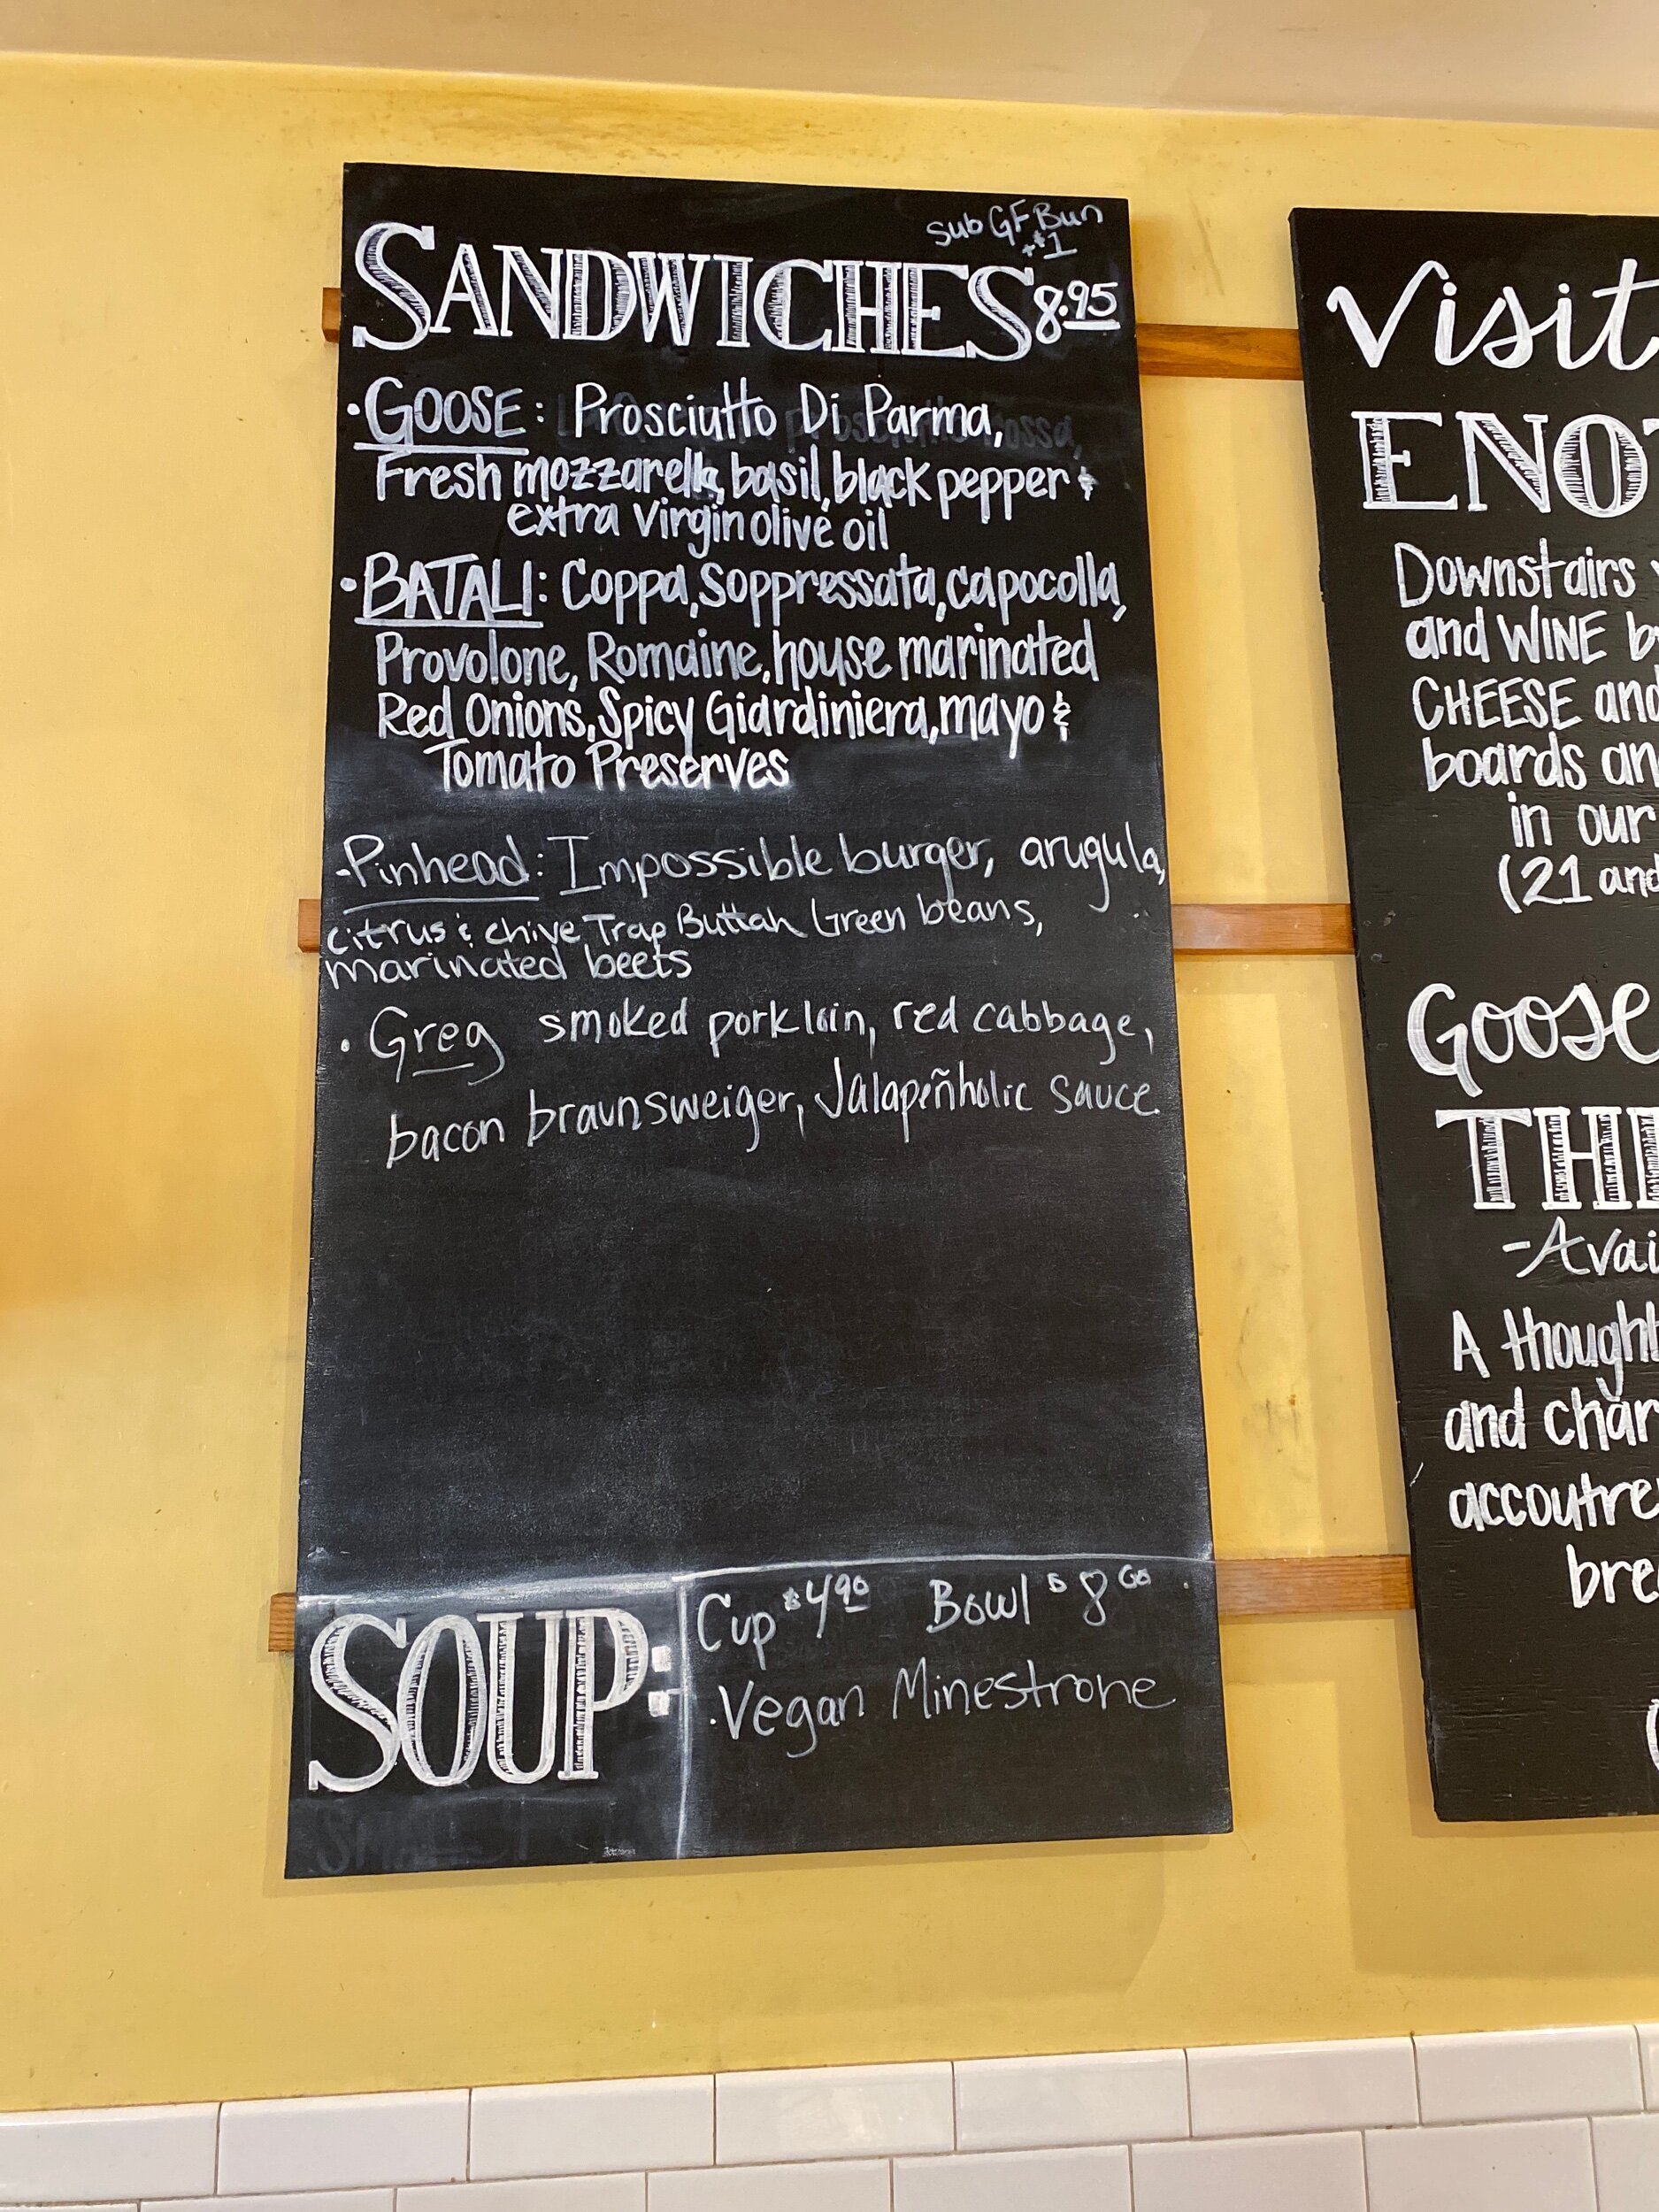 Sub GF Bun
+$1
SANDWICHES 8.95
·GOOSE: Prosciutto Di Parma,
Fresh mozzarella, basil, black pepper &
extra virgin olive oil
·BATALI: Coppa, Soppressata, capocolla,
Provolone, Romaine, house marinated
Red Onions, Spicy Giardiniera, mayo &
Tomato Preserves
·Pinhead: Impossible burger, arugula,
citrus & chive Trap Buttah Green beans,
marinated beets
· Greg smoked pork loin, red cabbage,
bacon braunsweiger, Jalapeñholic sauce
SOUP:
Cup $4.90 Bowl $8.00
·Vegan Minestrone
Visit
ENOT
Downstairs
and WINE b
CHEESE and
boards an
in our
(21 and
Goose
THE
-Avai
A thought
and char
accoutre
bre